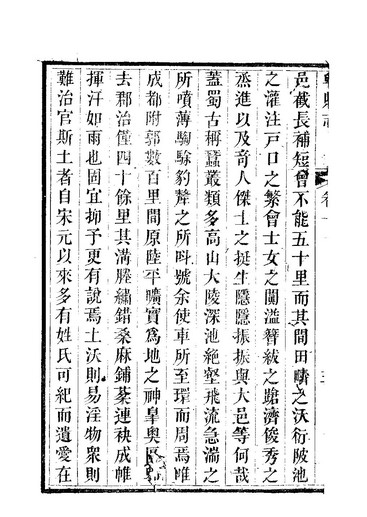 邑截長補短曾不能五十里而其間田疇之沃衍陂池
之灌注戸口之繁會士女之闐溢簪紱之蹌濟俊秀之
烝進以及竒人傑士之挺生隱隱振振與大邑等何哉
蓋蜀古稱蠶叢類多高山大陵深池絶壑飛流急湍之
所噴薄騊駼豹聲之所呌號余使車所至環而周焉唯
成都附郭數百里間原陸平曠寳為地之神臯奥區
去郡治僅四十餘里其溝塍繡錯桑麻鋪菜連袂成帷
揮汗如雨也固宜抑予更有說焉土沃則易淫物衆則
難治官斯土者自宋元以來多有姓氏可紀而遺愛在